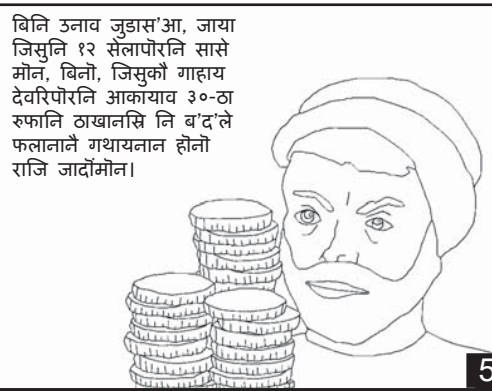 बिनि उनाव जुडास'आ, जाया
जिसुनि १२ सेलापॊरनि सासे
मॊन, बिनॊ, जिसुकौ गाहाय
देवरिपॊरनि आकायाव ३०-ठा
रुफानि ठाखानस्रि नि ब'द'ले
फलानानै गथायनान हॊनॊ
राजि जादॊंमॊन।
5